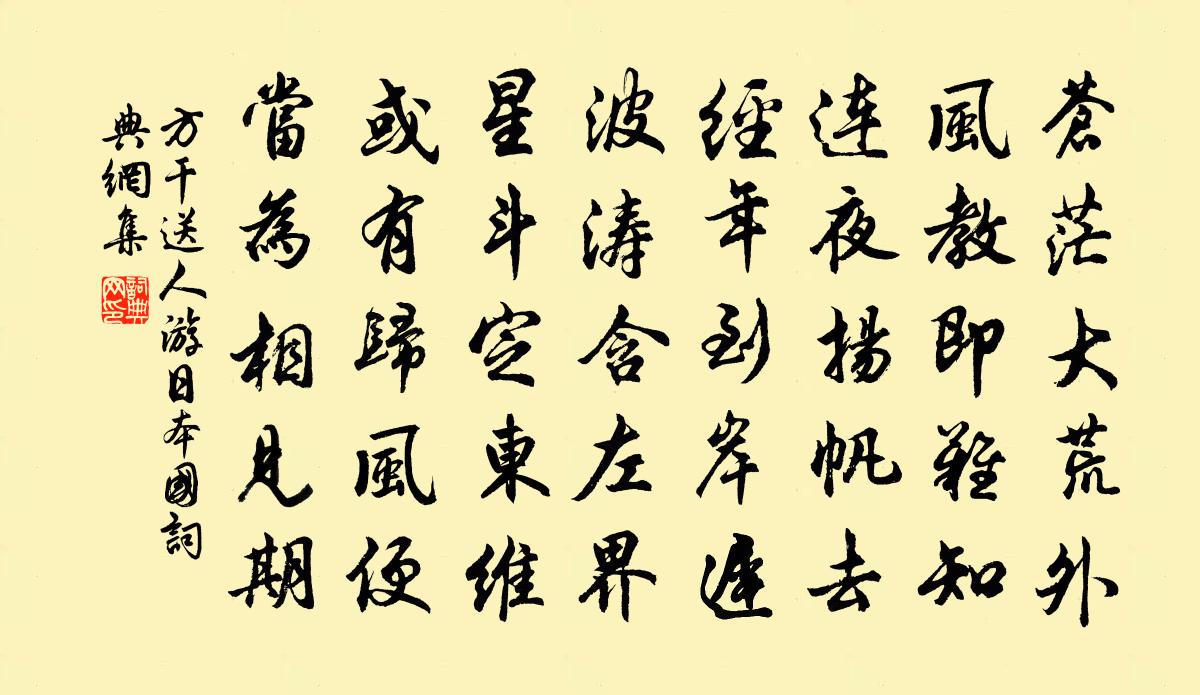 蒼茫大荒外
風教即難知
連夜揚帆去
經年到岸遲
波濤含左界
星斗定東維
或有歸風便
當為相見期
方干送人游日本國詞
典網集
詞典網印